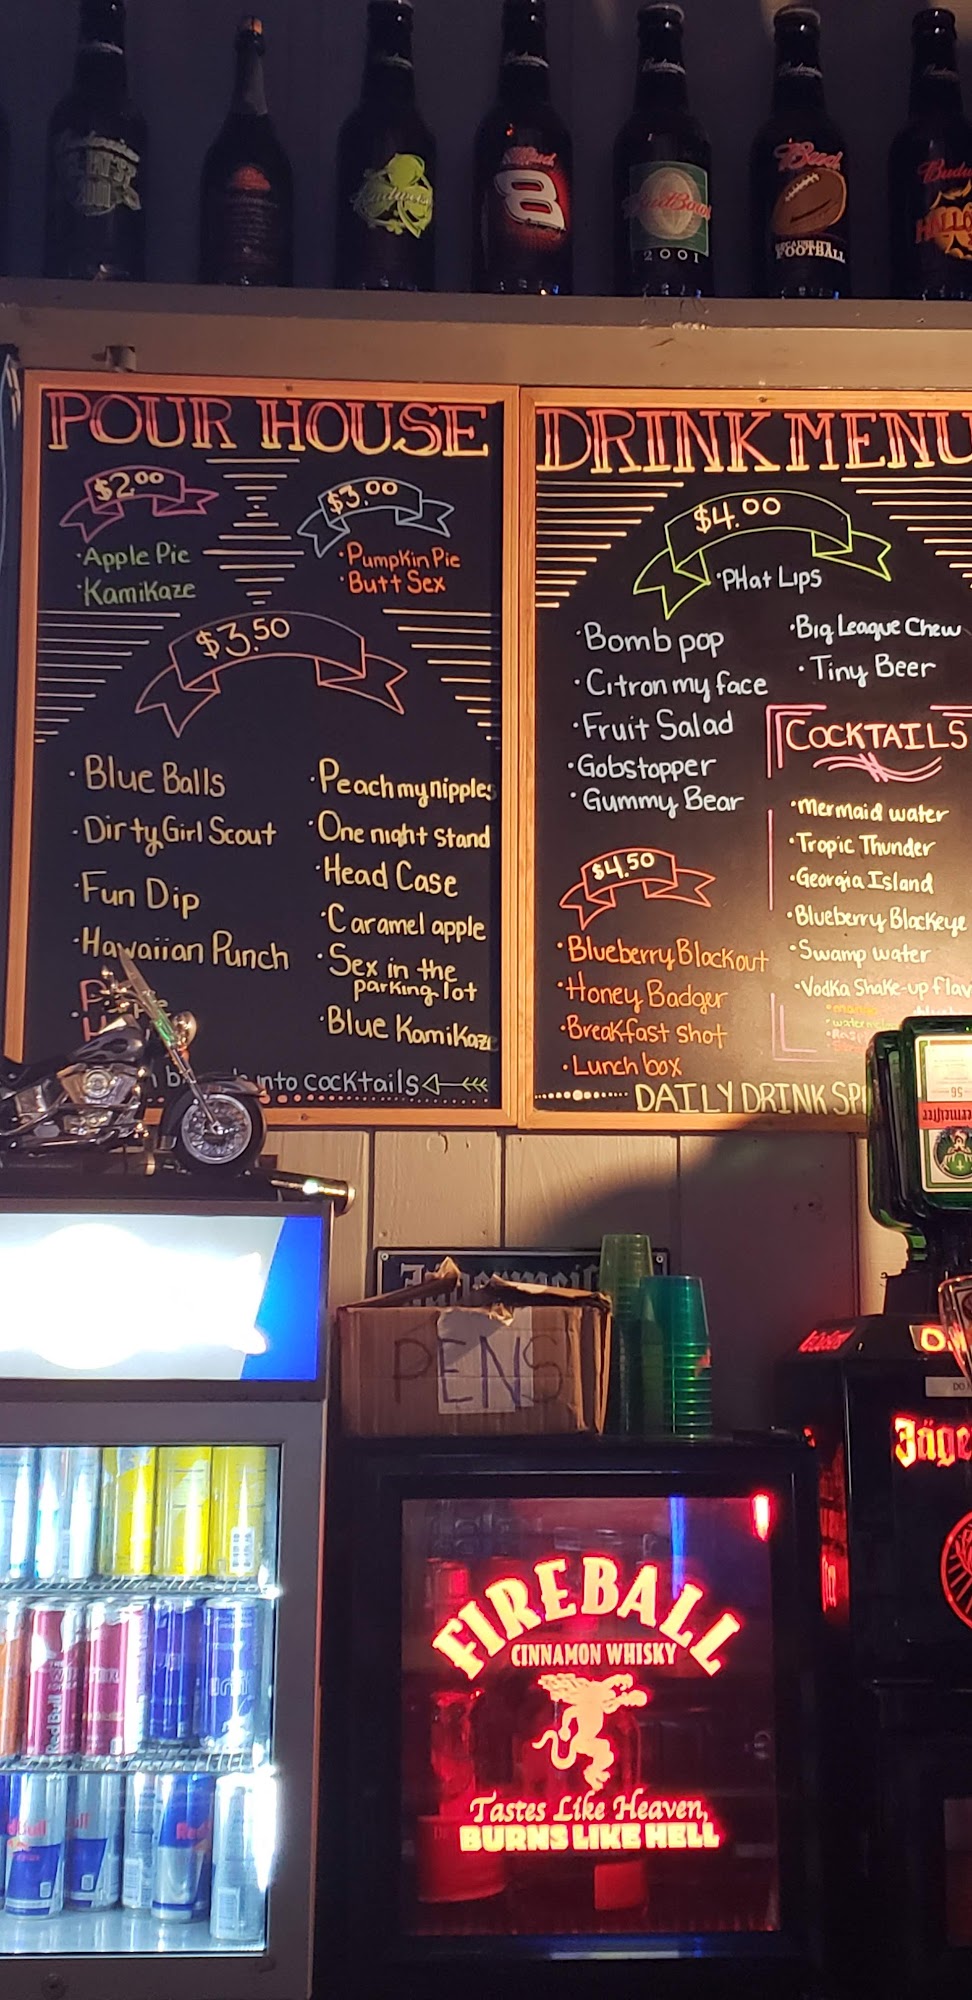 Budweiser
8
Budweiser
2001
Bud
BECAUSE IT'S
FOOTBALL
POUR HOUSE
$2.00
• Apple Pie
• Kamikaze
$3.00
• Pumpkin Pie
• Butt Sex
$3.50
• Blue Balls
• Dirty Girl Scout
• Fun Dip
• Hawaiian Punch
• Peach my nipples
• One night stand
• Head Case
• Caramel apple
• Sex in the
parking lot
• Blue Kamikaze
into cocktails
DRINK MENU
$4.00
• PHat Lips
• Bomb pop
• Citron my face
• Fruit Salad
• Gobstopper
• Gummy Bear
• Big League Chew
• Tiny Beer
$4.50
• Blueberry Blackout
• Honey Badger
• Breakfast shot
• Lunch box
COCKTAILS
• Mermaid water
• Tropic Thunder
• Georgia Island
• Blueberry Blackeye
• Swamp water
• Vodka Shake-up flav
DAILY DRINK SP
56
Jägermeister
PENS
Jäge
Red Bull
FIREBALL
CINNAMON WHISKY
Tastes Like Heaven,
BURNS LIKE HELL